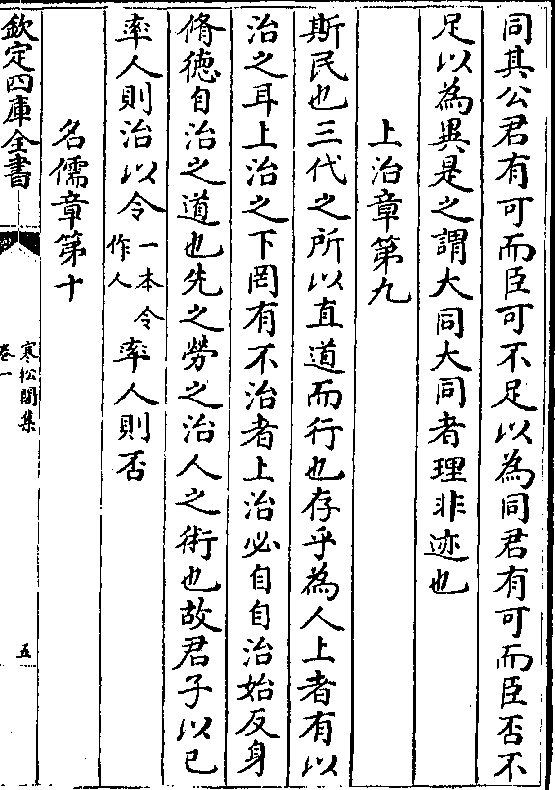 同其公君有可而臣可不足以為同君有可而臣否不
足以為異是之謂大同大同者理非迹也
上治章第九
斯民也三代之所以直道而行也存乎為人上者有以
治之耳上治之下罔有不治者上治必自自治始反身
脩徳自治之道也先之勞之治人之術也故君子以已
率人則治以令一本令作人率人則否
名儒章第十
欽定四庫全書
寒松閣集
卷一
五